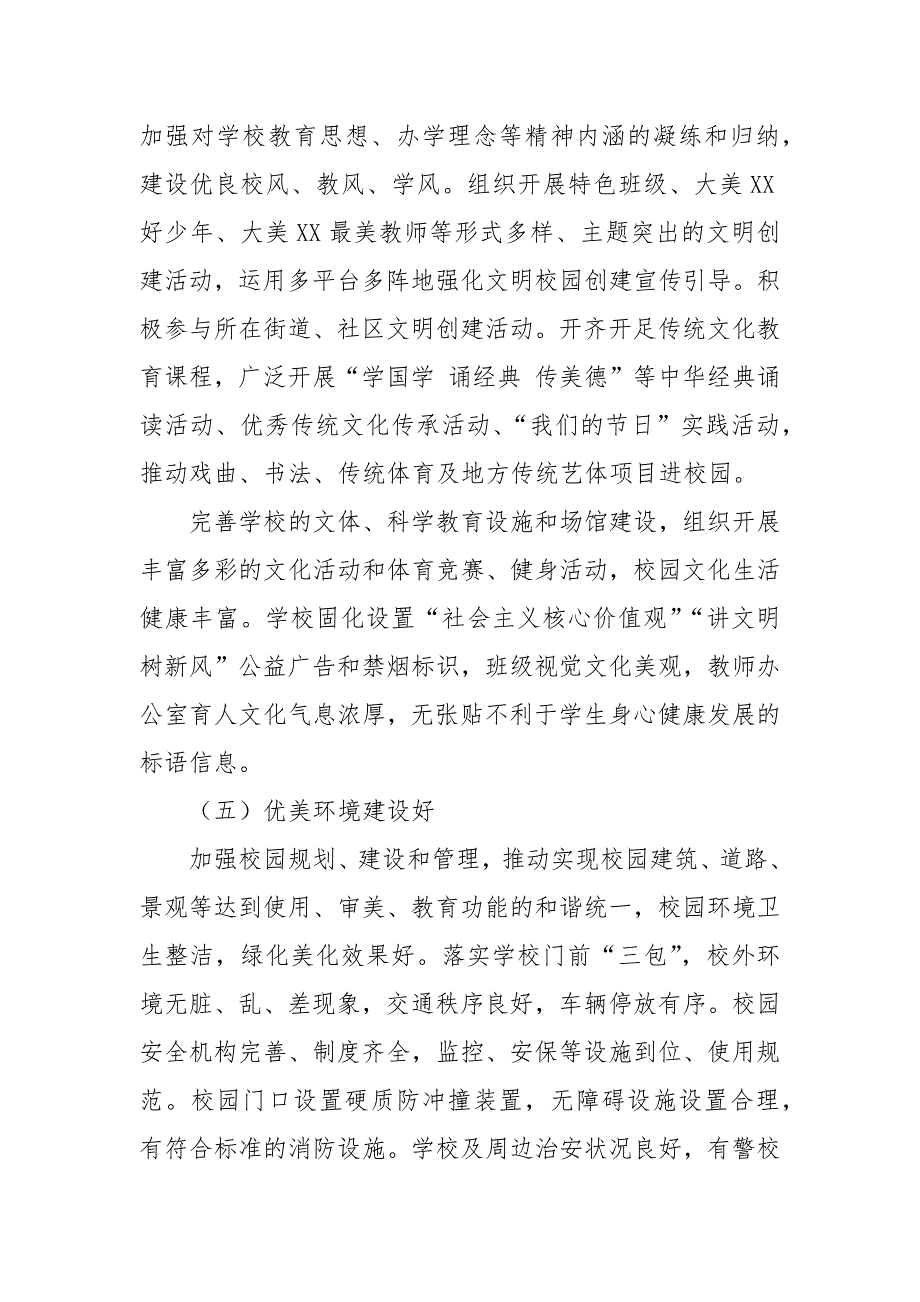 加强对学校教育思想、办学理念等精神内涵的凝练和归纳，
建设优良校风、教风、学风。组织开展特色班级、大美XX
好少年、大美XX最美教师等形式多样、主题突出的文明创
建活动，运用多平台多阵地强化文明校园创建宣传引导。积
极参与所在街道、社区文明创建活动。开齐开足传统文化教
育课程，广泛开展“学国学 诵经典 传美德”等中华经典诵
读活动、优秀传统文化传承活动、“我们的节日”实践活动，
推动戏曲、书法、传统体育及地方传统艺体项目进校园。
完善学校的文体、科学教育设施和场馆建设，组织开展
丰富多彩的文化活动和体育竞赛、健身活动，校园文化生活
健康丰富。学校固化设置“社会主义核心价值观”“讲文明
树新风”公益广告和禁烟标识，班级视觉文化美观，教师办
公室育人文化气息浓厚，无张贴不利于学生身心健康发展的
标语信息。
（五）优美环境建设好
加强校园规划、建设和管理，推动实现校园建筑、道路、
景观等达到使用、审美、教育功能的和谐统一，校园环境卫
生整洁，绿化美化效果好。落实学校门前“三包”，校外环
境无脏、乱、差现象，交通秩序良好，车辆停放有序。校园
安全机构完善、制度齐全，监控、安保等设施到位、使用规
范。校园门口设置硬质防冲撞装置，无障碍设施设置合理，
有符合标准的消防设施。学校及周边治安状况良好，有警校